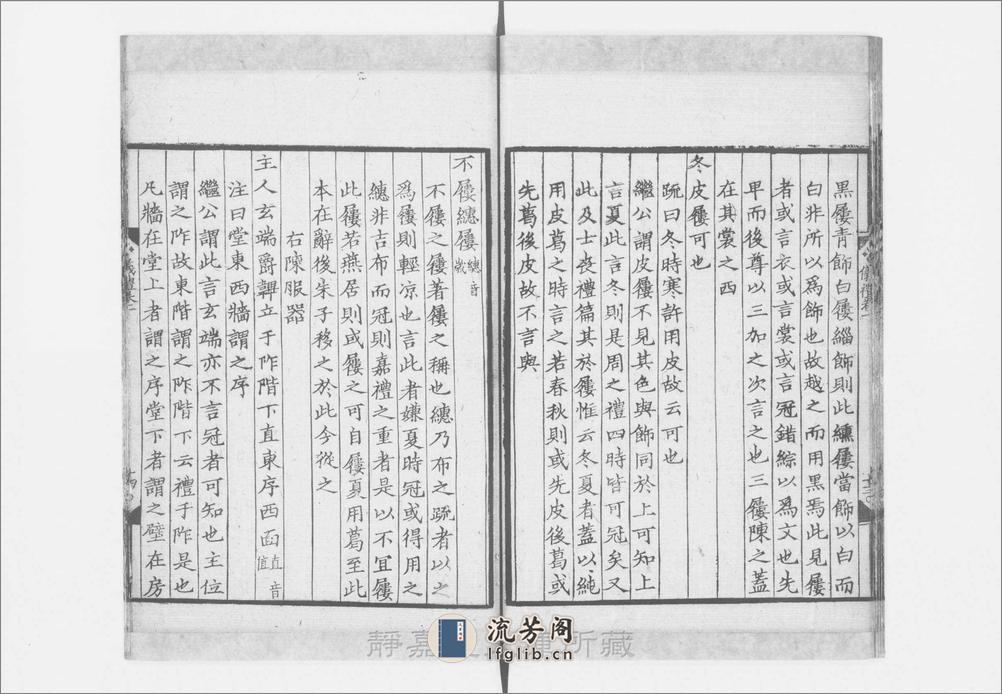 黒屨青飾白屨緇飾則此纁屨當飾以白而
白非所以爲飾也故越之而用黒焉此見屨
者或言衣或言裳或言冠錯綜以爲文也先
卑而後尊以三加之次言之也三屨陳之蓋
在其裳之西
冬皮屨可也
疏曰冬時寒許用皮故云可也
繼公謂皮屨不見其色與飾同於上可知上
言夏此言冬則是周之禮四時皆可冠矣又
此及士喪禮篇其於屨惟云冬夏者蓋以純
用皮葛之時言之若春秋則或先皮後葛或
先葛後皮故不言與
不屨繐屨繐音歲
不屨之屨著屨之稱也繐乃布之疏者以之
爲屨則輕凉也言此者嫌夏時冠或得用之
繐非吉布而冠則嘉禮之重者是以不宜屨
此屨若燕居則或屨之可自屨夏用葛至此
本在辭後朱子移之於此今從之
右陳服器
主人玄端爵韠立于阼階下直東序西面直音值
注曰堂東西牆謂之序
繼公謂此言玄端亦不言冠者可知也主位
謂之阼故東階謂之阼階下云禮于阼是也
凡牆在堂上者謂之序堂下者謂之壁在房
儀禮卷二
十三
儀禮卷二
十四
靜嘉堂文庫所藏
流芳阁
lfglib.cn